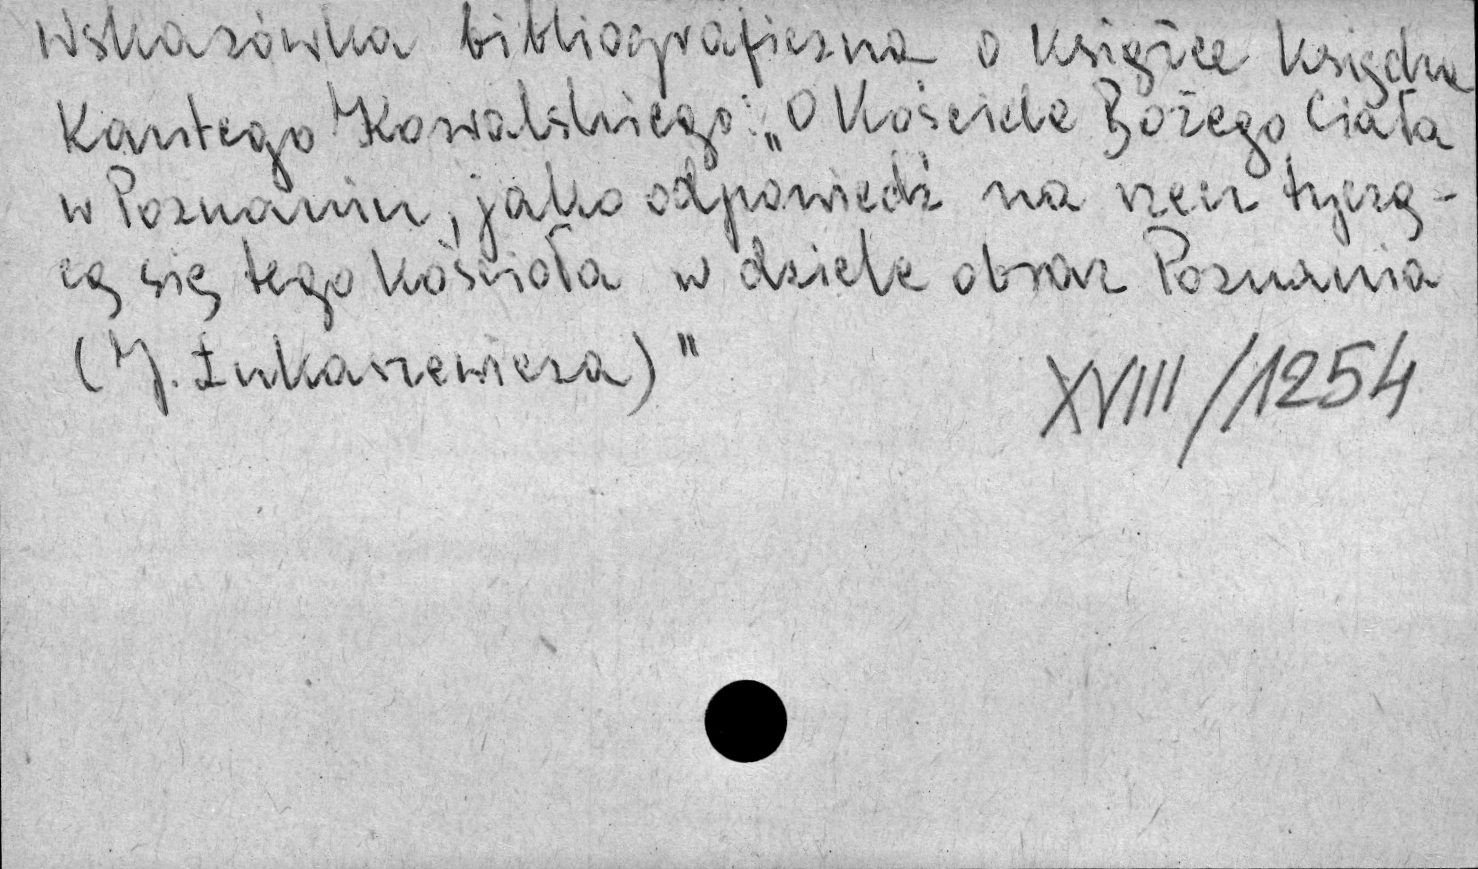 Wskazówka bibliograficzna o książce księdza
Kantego Kowalskiego: „O Kościele Bożego Ciała
w Poznaniu, jako odpowiedź na rzecz tyczą-
cą się tego kościoła w dziele obraz Poznania
(J. Łukaszewicza)"
XVIII/1254